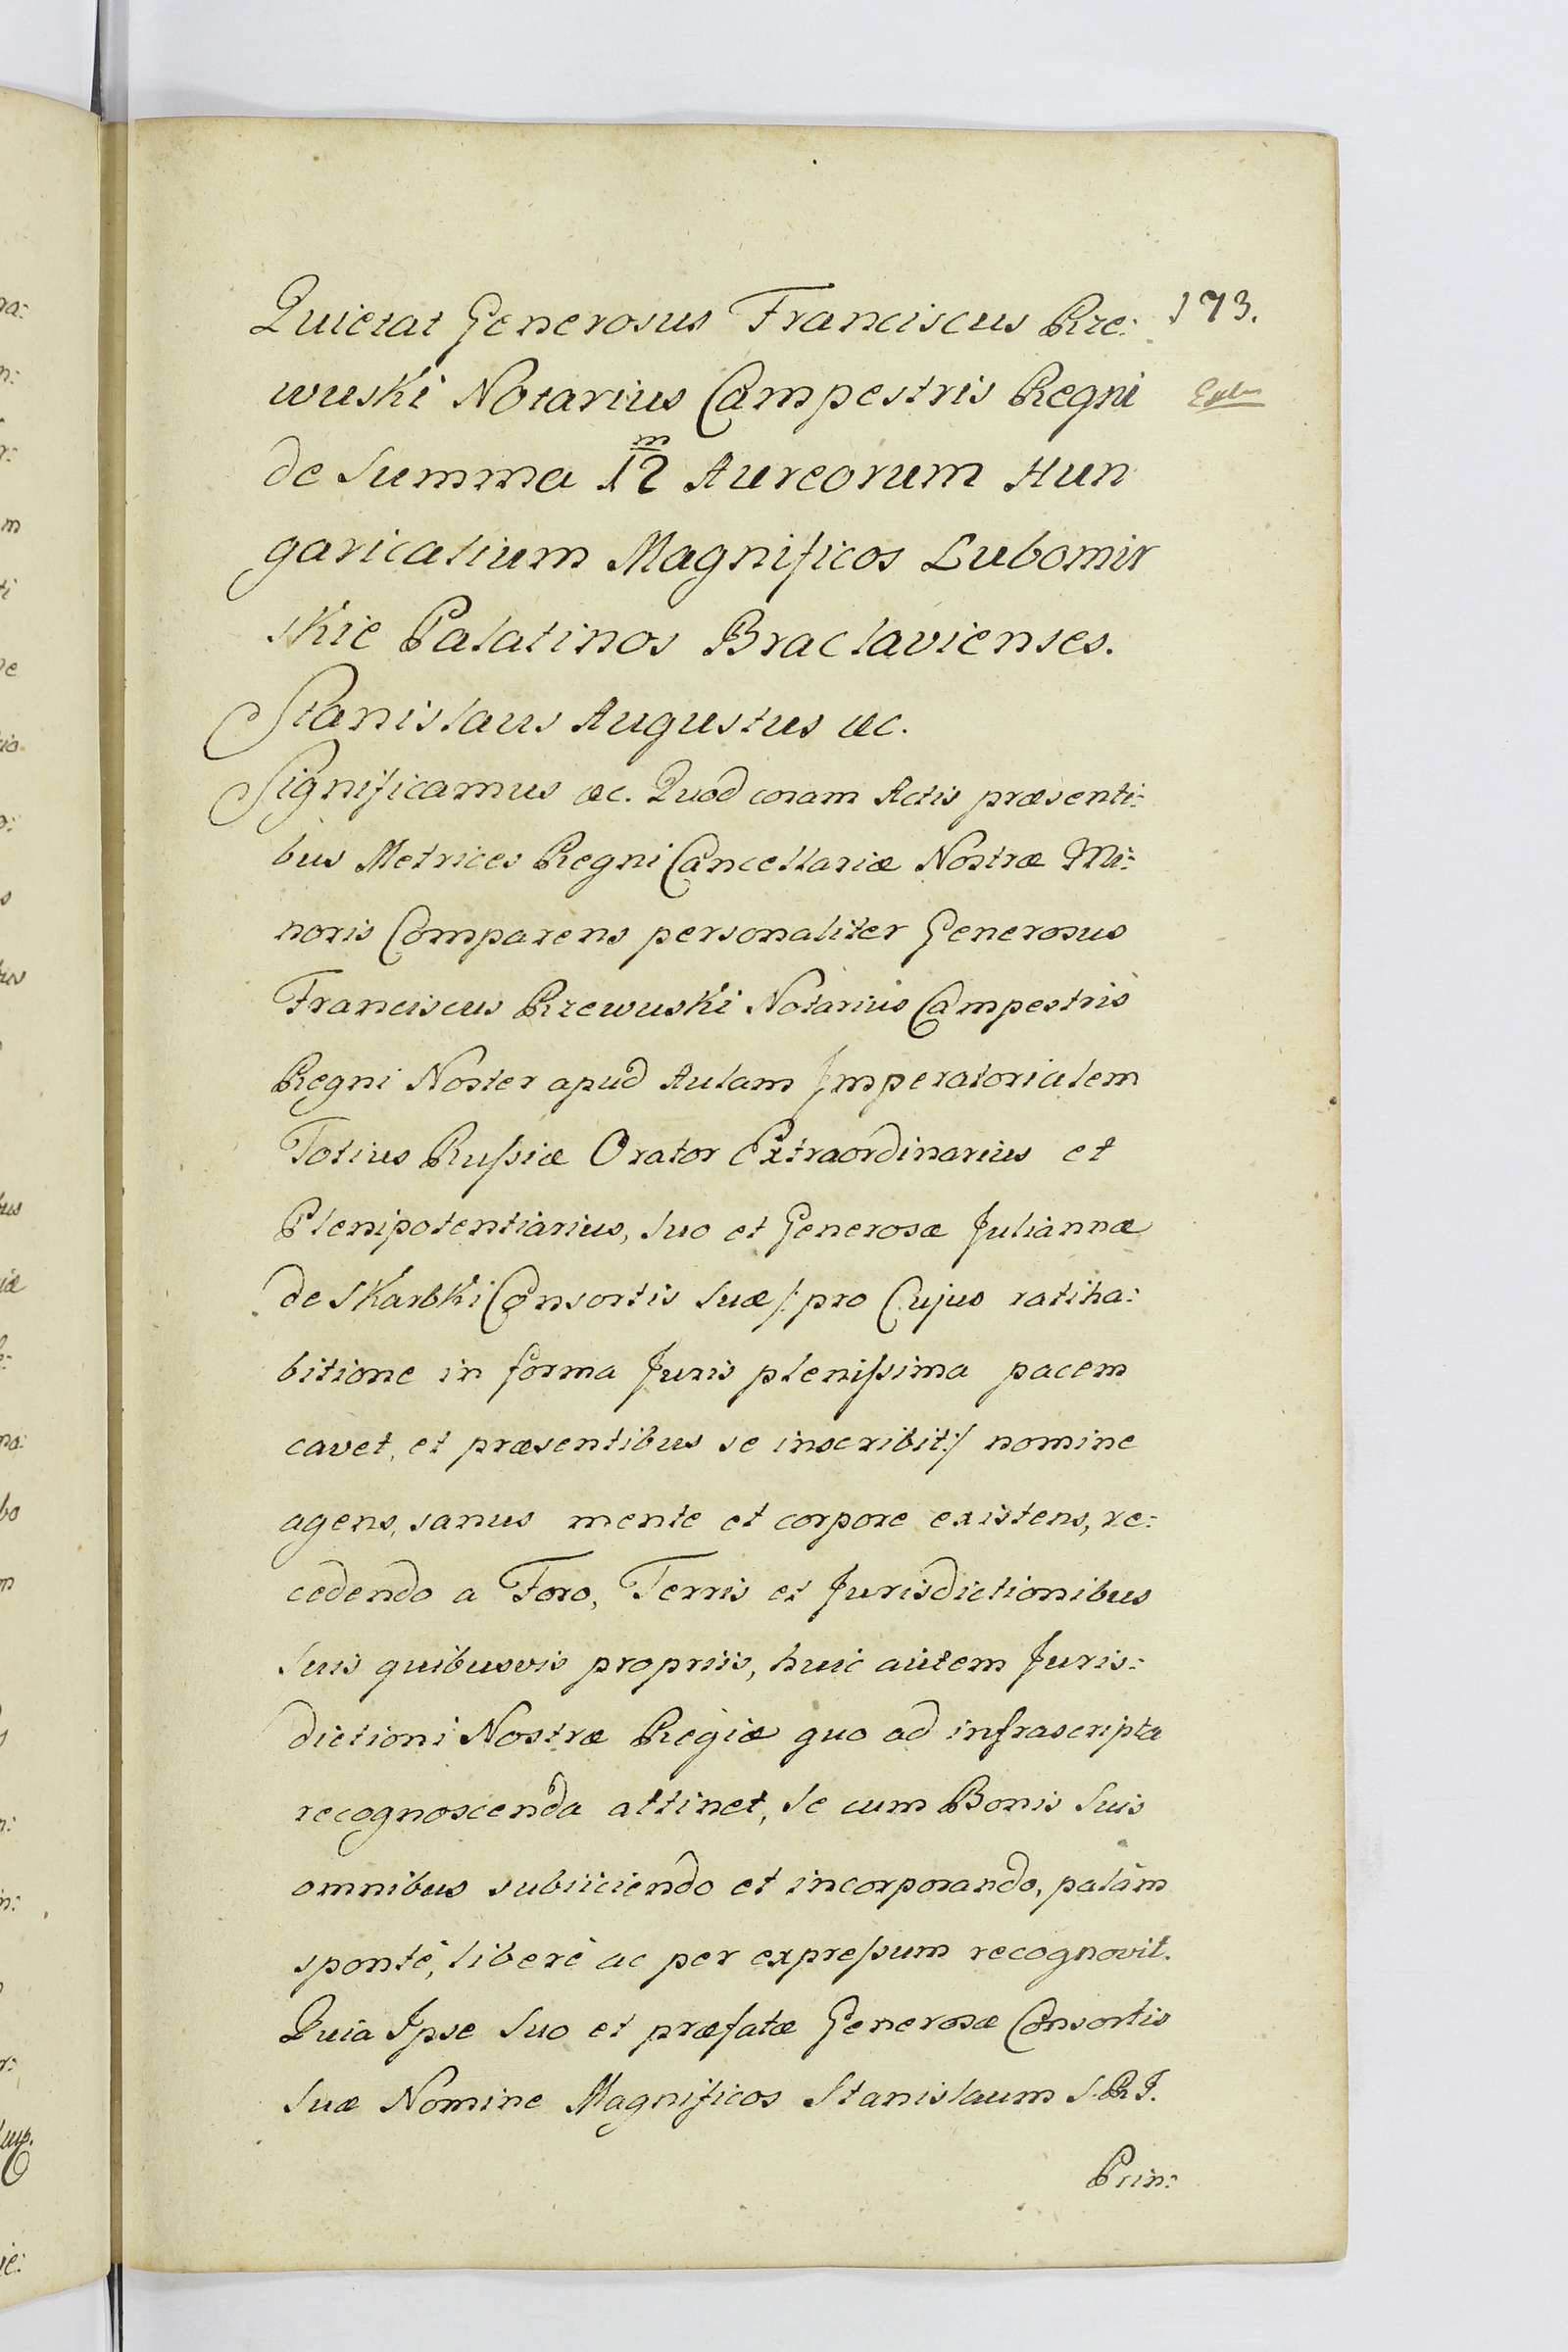 Quietat Generosus Franciscus Rze: 173.
wuski Notarius Campestris Regni
de Summa 12 m Aureorum Hun
garicalium Magnificos Lubomir
skie Palatinos Braclavienses.
Stanislaus Augustus &c.
Significamus &c. Quod coram Actis præsenti:
bus Metrices Regni Cancellariæ Nostræ Mi:
noris Comparens personaliter Generosus
Franciscus Rzewuski Notarius Campestris
Regni Noster apud Aulam Imperatorialem
Totius Russiæ Orator Extraordinarius et
Plenipotentiarius, Suo et Generosæ Juliannæ
de Skarbki Consortis Suæ /: pro Cujus ratiha:
bitione in forma Juris plenissima pacem
cavet, et præsentibus se inscribit :/ nomine
agens, sanus mente et corpore existens, re:
cedendo a Foro, Terris et Jurisdictionibus
Suis quibusvis propriis, huic autem Juris:
dictioni Nostræ Regiæ quo ad infrascripta
recognoscenda attinet, Se cum Bonis Suis
omnibus subiiciendo et incorporando, palàm
spontè, liberè ac per expressum recognovit.
Quia Ipse Suo et præfatæ Generosæ Consortis
Suæ Nomine Magnificos Stanislaum S.R.I.
Prin: